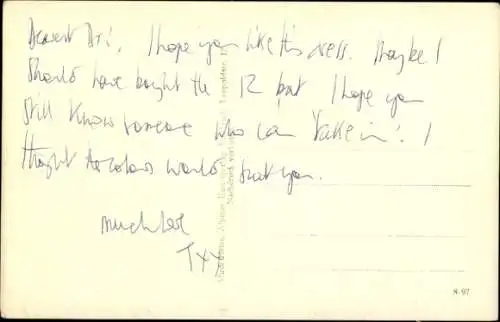 Dearest Di, I hope you like this dress. Maybe I
should have bought the 12 but I hope you
still know someone who can take in! I
thought the colors would suit you.
much love
T xx
N. 97